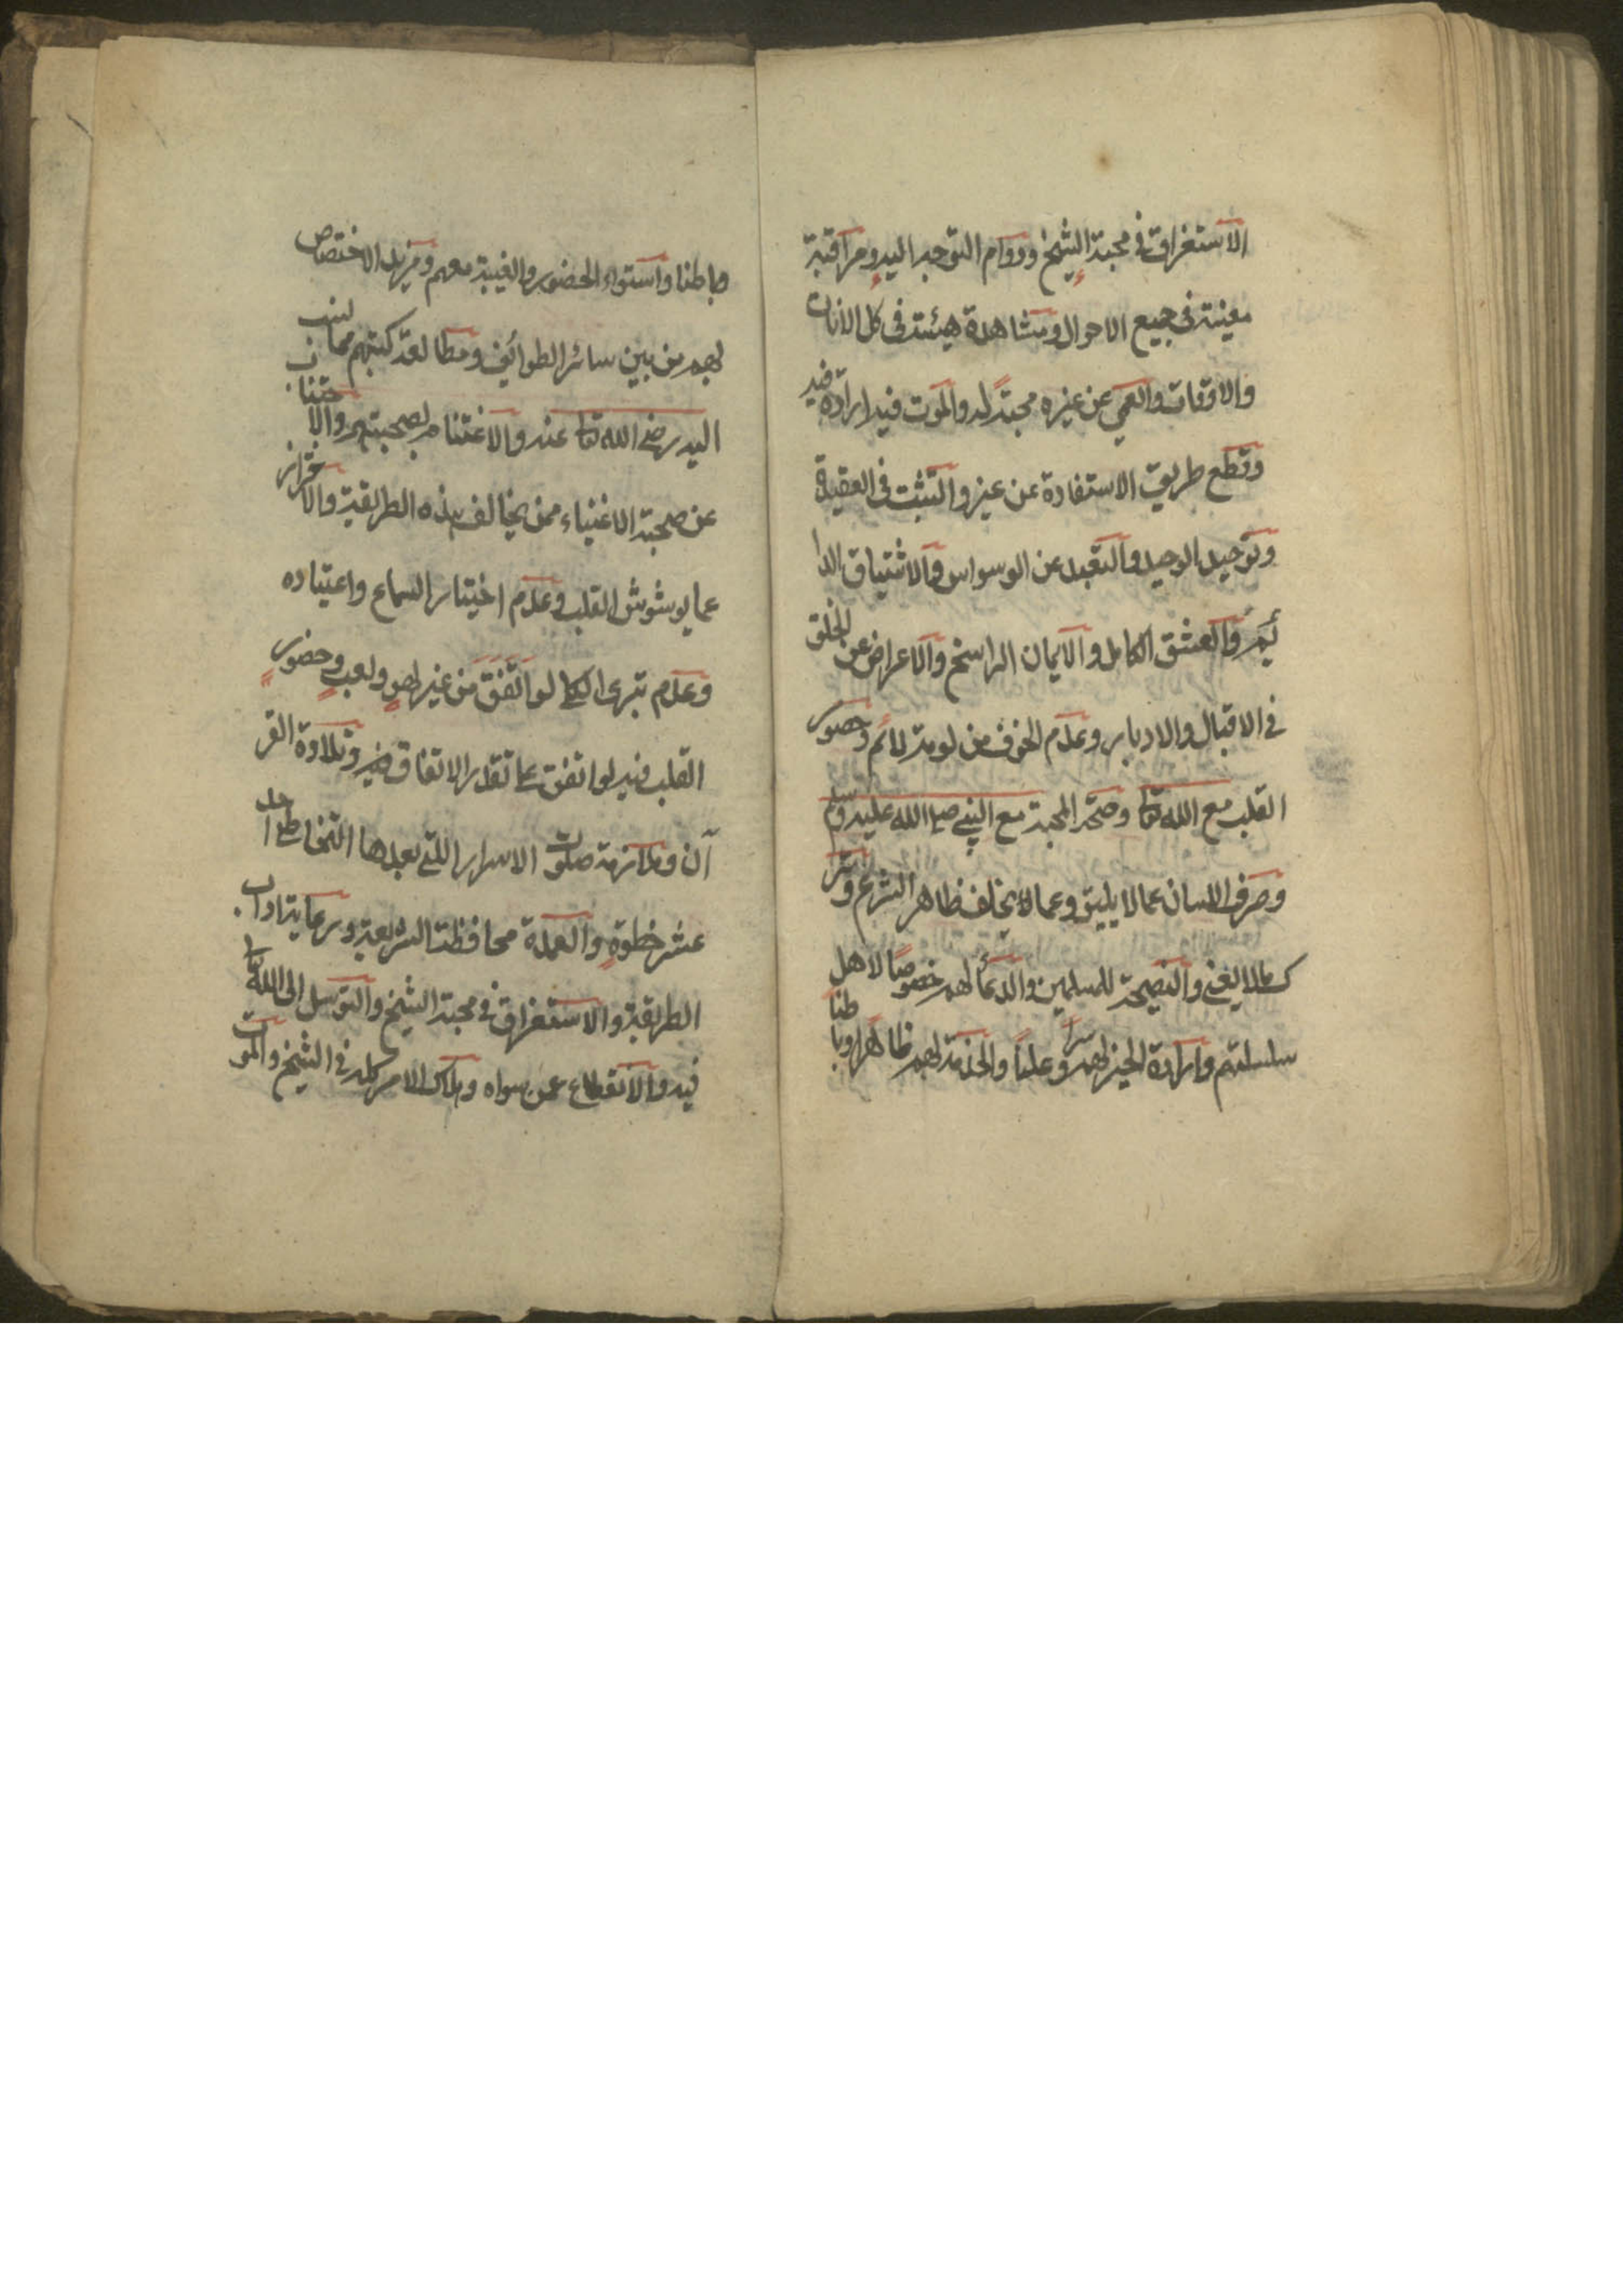 الاستغراق في محبة الشيخ ودوام التوجه اليه ومراقبة
معيته في جميع الاحوال ومشاهدة هيئته في كل الأنات
والاوقات والعمي عن غيره محبة له والموت فيه ارادة فيه
وقطع طريق الاستفادة عن غيره والتثبت في العقيدة
وتوحيد الوحيد والتعبد عن الوسواس والاشتياق الدا
ئم والعشق الكامل والايمان الراسخ والاعراض عن الخلق
في الاقبال والادبار وعدم الخوف من لومة لائم وحضور
القلب مع الله تعا وصحة المحبة مع النبي صلى الله عليه وسلم
وصرف اللسان عما لا يليق وعما لا يخالف ظاهر الشرع وتر
ك مالا يغني والنصيحة للمسلمين والدعأ لهم خصوصًا لاهل
سلسلتهم وارادة الخير لهم سرا وعلنًا والخدمة لهم ظاهرًا وبا طنا
وباطنا واستواء الحضور والغيبة معهم ومزيد الاختصاص
لهم من بين سائر الطوائف ومطالعة كتبهم مما ينسب
اليه رضي الله تعا عنه والاغتنام لصحبتهم والا جتناب
عن صحبة الاغنياء ممن يخالف هذه الطريقة والا حتراز
عما يوشوش القلب وعدم اختيار السماع واعتياده
وعدم تبري الكلي لو اتفق من غير لهو ولعب وحضور
القلب فيه لو اتفق على تقدير الاتفاق فيه وتلاوة القر
آن وملازمة صلوت الاسرار اللتي بعدها التخاطي احد
عشر خطوة والعمدة محافظة الشريعة ورعاية اداب
الطريقة والاستغراق في محبة الشيخ والتوسل الى الله تعا
فيه والانقطاع عمن سواه وملاك الامر كله في الشيخ والموت